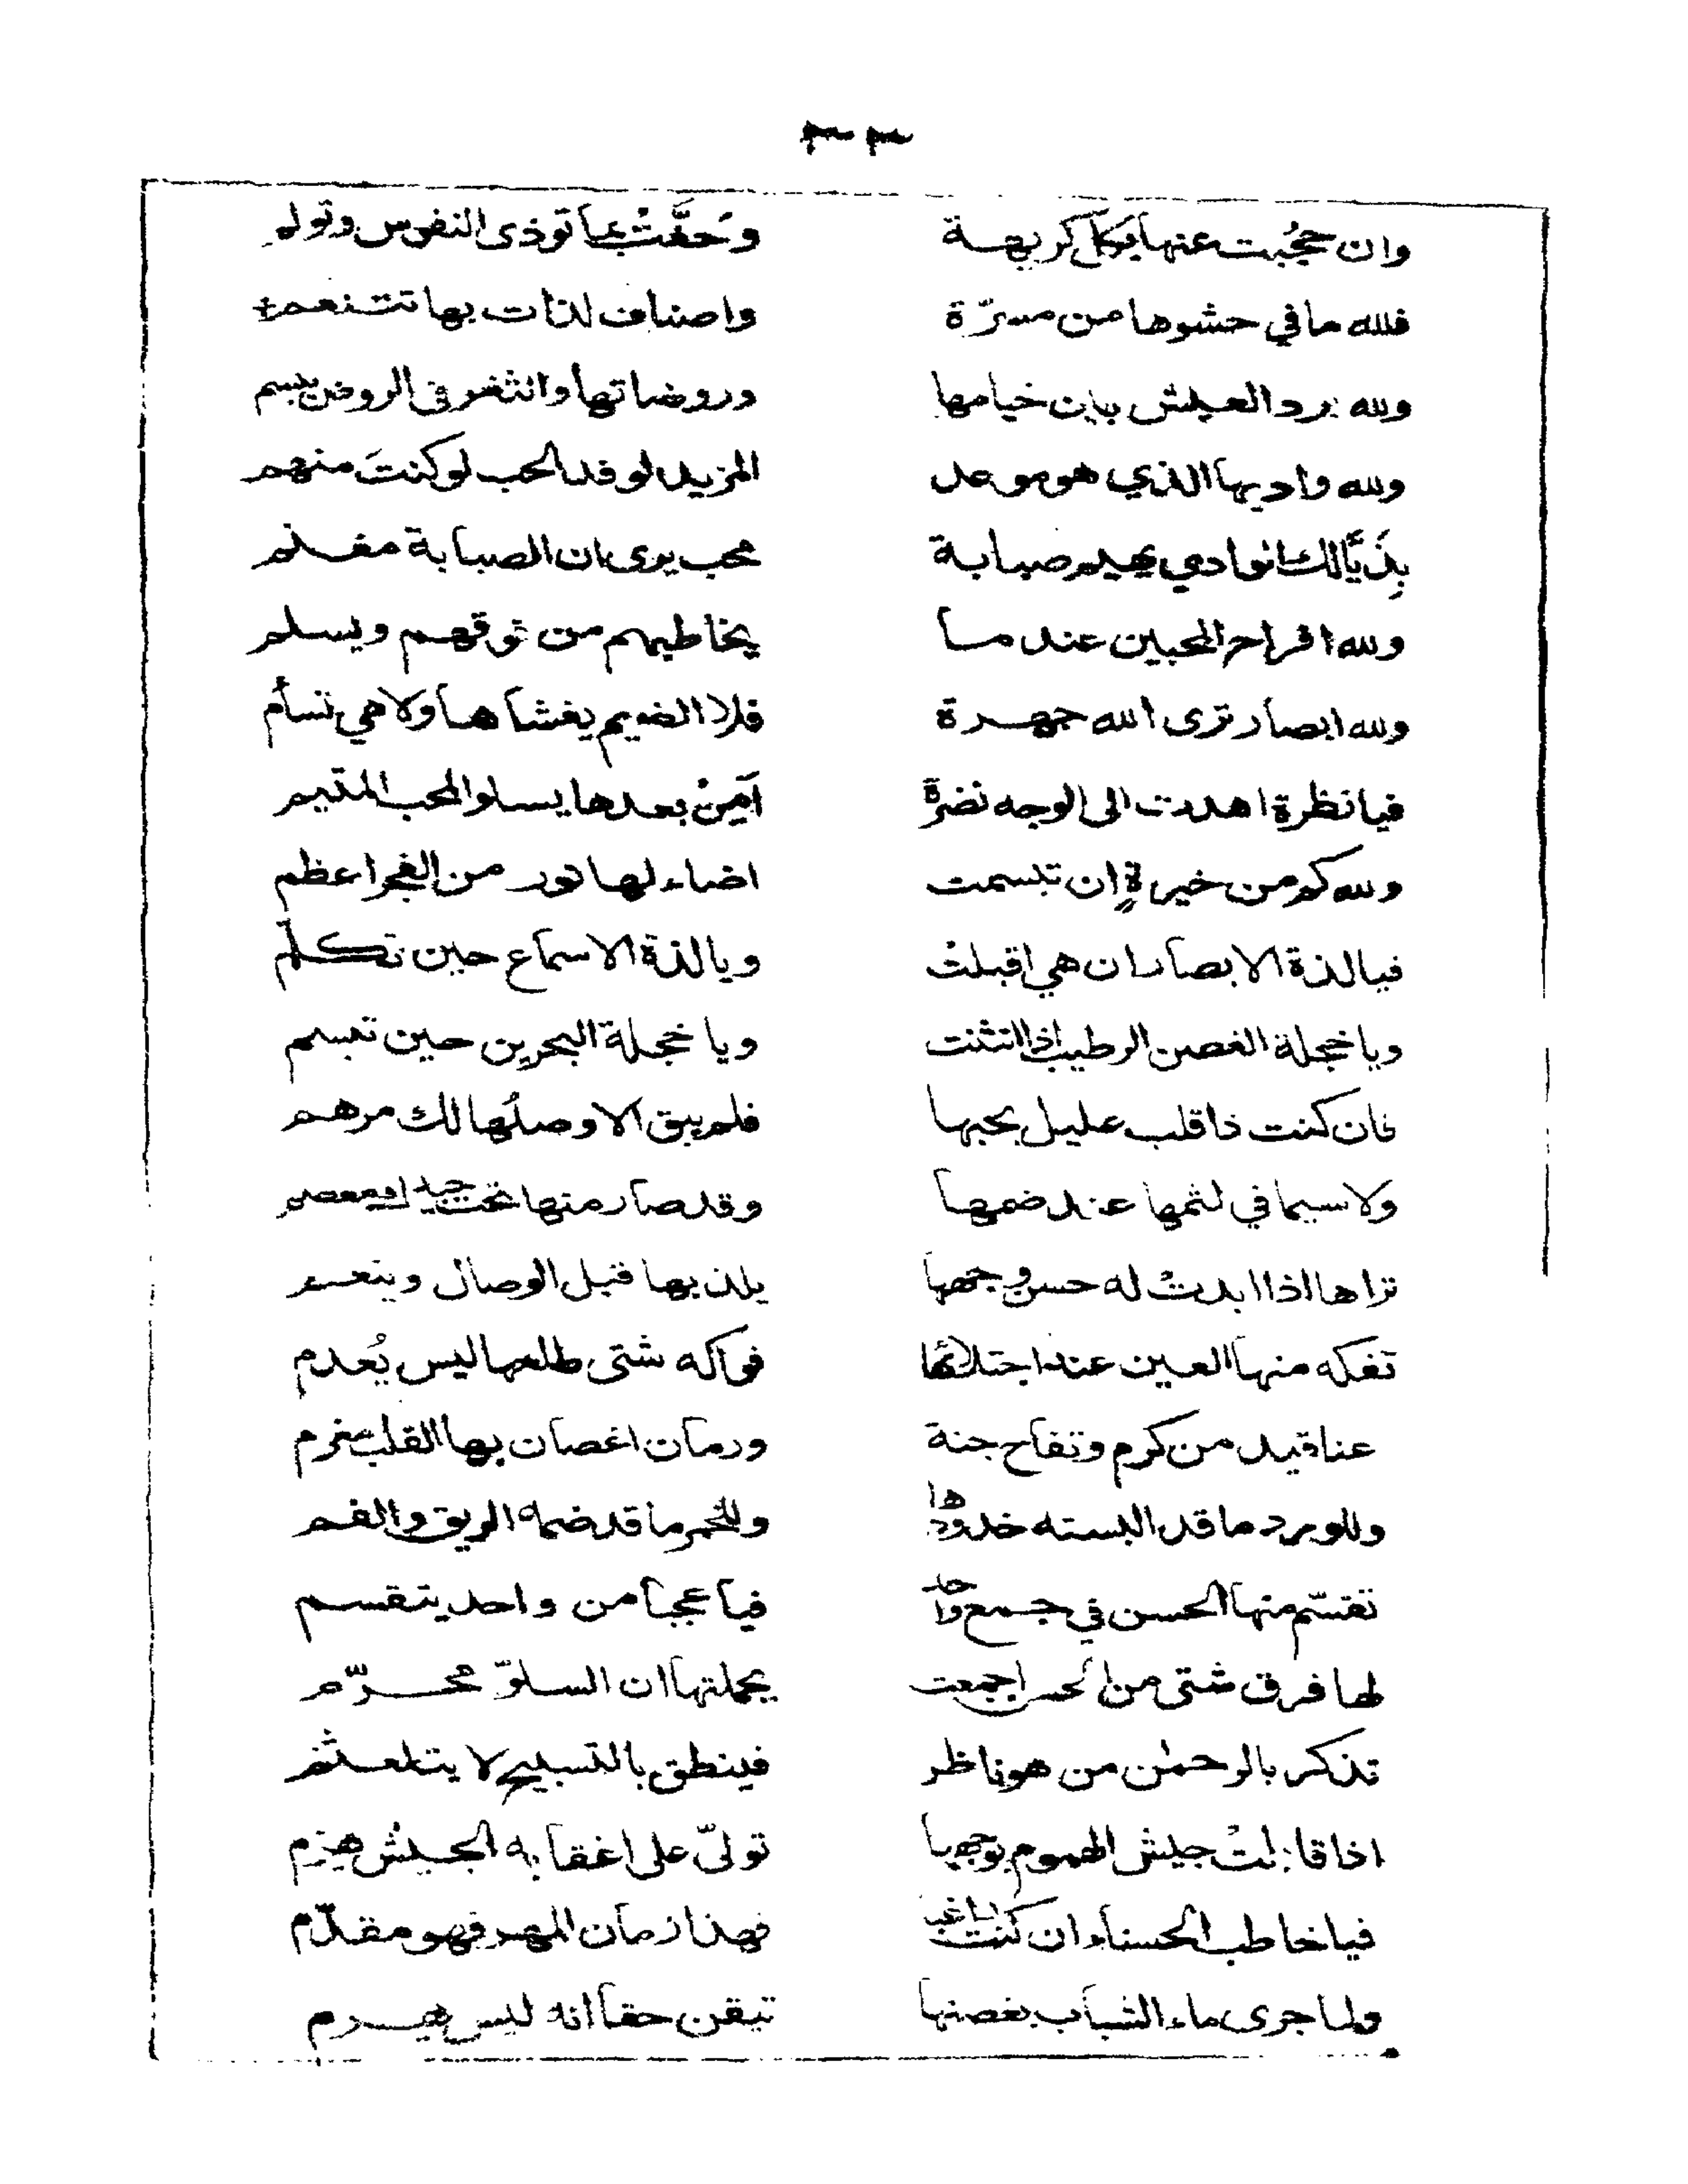 ٣٣
وان حُجبت عنها بكل كريهة وحَفَّتْ بما توذى النفوس وتولم
فلله ما في حشوها من مسرّة واصناف لذات بها تتنعم
ولله برد العيش بين خيامها وروضاتها والثغر فى الروض يبسم
ولله واديها الذي هو موعد المزيد لوفد الحب لو كنتَ منهم
بِذَيَّالك الوادي يهيم صبابة محب يرى ان الصبابة مغنم
ولله افراح المحبين عند ما يخاطبهم من فوقهم ويسلم
ولله ابصار ترى الله جهرة فلا الضيم يغشاها ولا هي تسأم
فيا نظرة اهدت الى الوجه نضرةً أمِنْ بعدها يسلو المحب المتيم
ولله كم من خيرةٍ ان تبسمت اضاء لها نور من الفجر اعظم
فيا لذة الابصار ان هي اقبلتْ ويا لذة الاسماع حين تكلّم
ويا خجلة الغصن الرطيب اذا انثنت ويا خجلة البحرين حين تبسم
فان كنت ذا قلب عليل بحبها فلم يبق الا وصلُها لك مرهم
ولا سيما في لثمها عند ضمها وقد صار منها تحت جيد ومعصم
تراها اذا ابدتْ له حسن وجهها يلذ بها قبل الوصال وينعم
تفكه منها العين عند اجتلائها فواكه شتى طلعها ليس يُعدم
عناقيد من كرم وتفاح جنة ورمان اغصان بها القلب مغرم
وللورد ما قد البسته خدودها وللخمر ما قد ضمه الريق والفم
تقسّم منها الحسن في جمع واحد فيا عجبا من واحد يتقسم
لها فرق شتى من الحسن اجمعت بجملتها ان السلوّ محرّم
تذكر بالرحمٰن من هو ناظر فينطق بالتسبيح لا يتلعثم
اذا قابلتْ جيش الهموم بوجهها تولىّ على اعقابه الجيش يهزم
فيا خاطب الحسناء ان كنت راغبا فهذا زمان المهر فهو مقدّم
ولما جرى ماء الشباب بغصنها تيقن حقا انه ليس يهرم